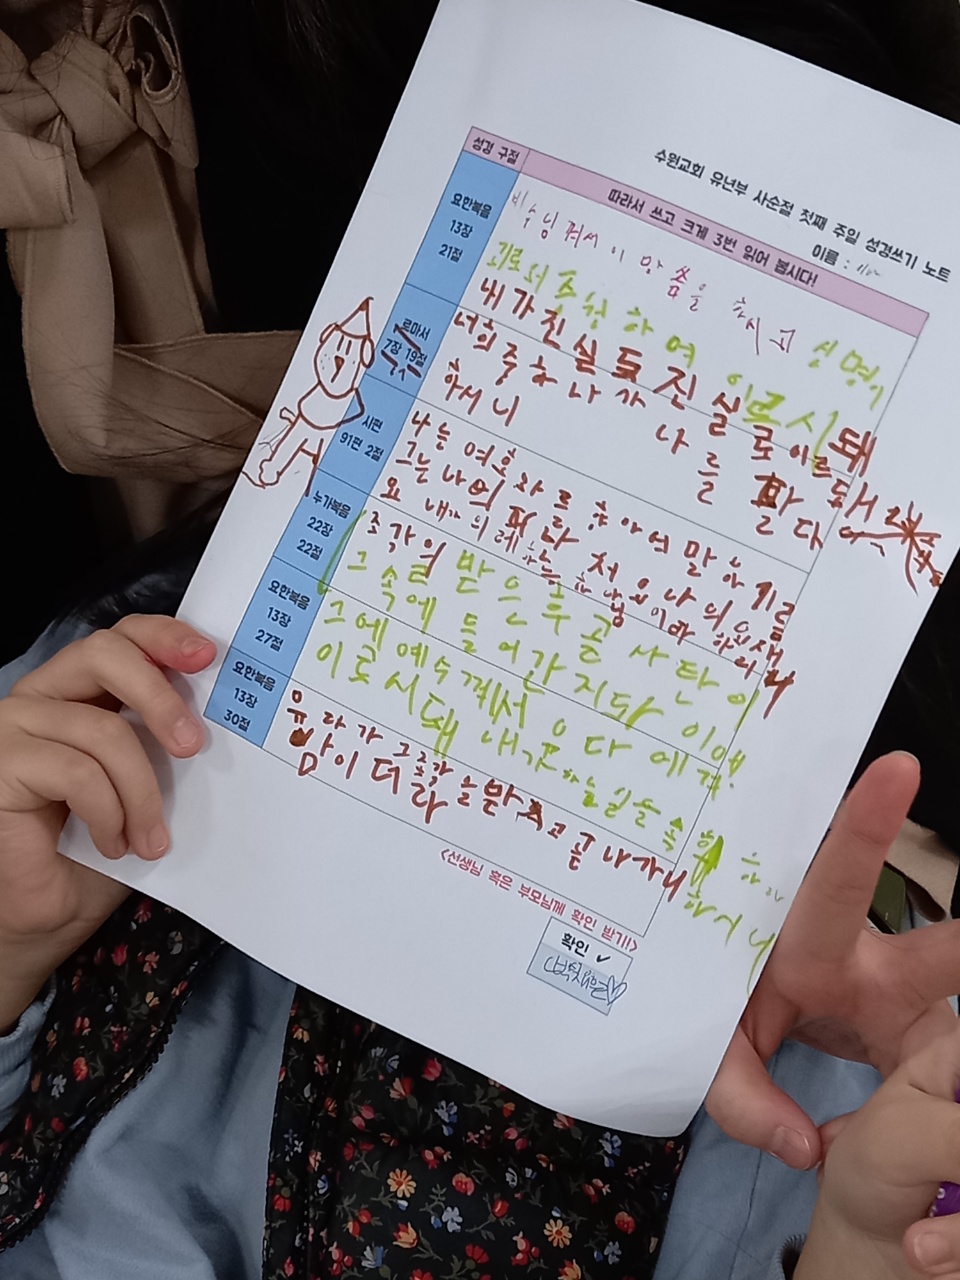 수원교회 유년부 사순절 첫째 주일 성경쓰기 노트
이름 :
성경 구절
따라서 쓰고 크게 3번 읽어 봅시다!
요한복음
13장
21절
비수님 껴서 이 말씀을
심령이
괴로워 하여 이르시돼
내가 진실로 진실로 이르
너희 중 하나가 나를 팔다
하시니
로마서
7장 19절
시편
91편 2절
나는 여호와를 향하여 말하기를
그는 나의 피란처 요 나의 요새
요 내가 의뢰하는 하나님 이라 하리니
누가복음
22장
22절
조각을 받은 후 곧 사탄이
그 속에 들어간지라 이에
요한복음
13장
27절
그에 예수께서 유다에게
이르시돼 네가 하는 일을 속히 하라
하시니
요한복음
13장
30절
유다가 그 조각을 받고 곧 나가니
밤이더라
<선생님 혹은 부모님께 확인 받기!>
확인 ✓